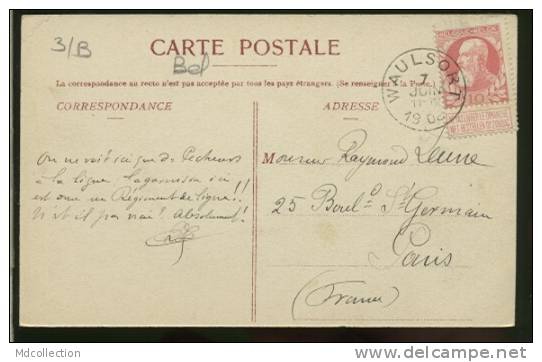 3/B
Bel
CARTE POSTALE
La correspondance au recto n'est pas acceptée par tous les pays étrangers. (Se renseigner à la Poste.)
CORRESPONDANCE
ADRESSE
WAULSORT
7
JUIN
190
10
On ne voit ici que des Pêcheurs
à la ligne, la garnison ici
est donc un Régiment de ligne!!
N'est il pas vrai? Absolument!
Monsieur Raymond
25 Boul. St Germain
Paris
(France)
Mdcollection
http://www.delcampe.net